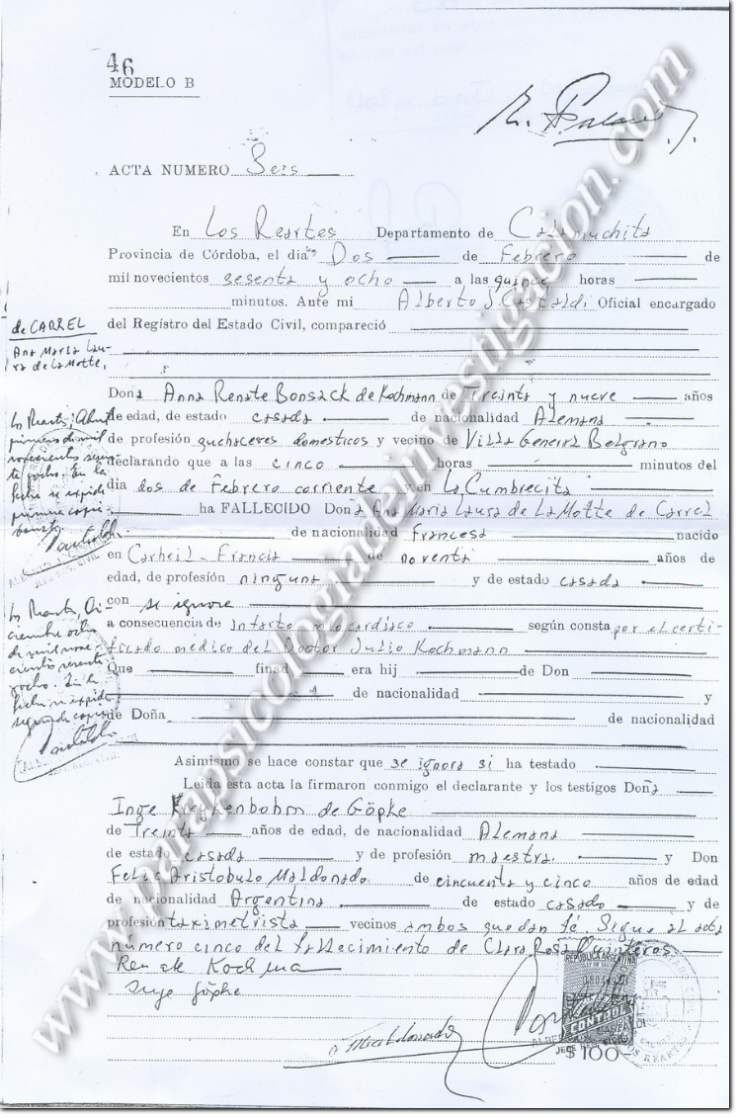 46
MODELO B
ACTA NUMERO Seis
En Los Reartes Departamento de Calamuchita
Provincia de Córdoba, el día Dos de Febrero de
mil novecientos sesenta y ocho a las quince horas
minutos. Ante mi Alberto J. Castaldi Oficial encargado
del Registro del Estado Civil, compareció
de CARREL
Ana Maria Lau-
ra de La Motte,
Doña Anna Renate Bonsack de Kochmann de Treinta y nueve años
de edad, de estado casada de nacionalidad Alemana
de profesión quehaceres domesticos y vecino de Villa General Belgrano
declarando que a las cinco horas minutos del
día dos de Febrero corriente y en La Cumbrecita
ha FALLECIDO Doña Ana Maria Laura de La Motte de Carrel
de nacionalidad Francesa nacido
en Francia de noventa años de
edad, de profesión ninguna y de estado casada
con se ignora
a consecuencia de infarto miocardico según consta por el certi-
ficado medico del Doctor Julio Kochmann
Que finad era hij de Don
de nacionalidad y
de Doña de nacionalidad
Asimismo se hace constar que se ignora si ha testado
Leída esta acta la firmaron conmigo el declarante y los testigos Doña
Inge de Göpke
de Treinta años de edad, de nacionalidad Alemana
de estado casada y de profesión maestra. y Don
Felix Aristobulo Maldonado de cincuenta y cinco años de edad
de nacionalidad Argentina de estado casado y de
profesión taximetrista vecinos ambos que dan fé. Sigue al acta
número cinco del fallecimiento de Clara Rosa Quinteros
Renate Kochmann
Inge Göpke
REPUBLICA ARGENTINA
CONTROL
$ 100
www.parapsicologiadeinvestigacion.com